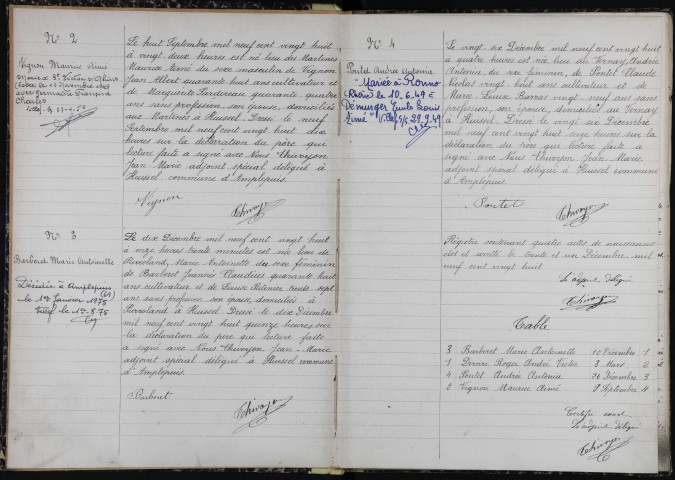 N° 2
Vignon Maurice Aimé
marié à St Victor s/ Rhins
Charles
Le huit Septembre mil neuf cent vingt huit
à vingt deux heures est né lieu des Martines
Maurice Aimé du sexe masculin de Vignon
Jean Albert quarante huit ans cultivateur et
de Marguerite quarante quatre
ans sans profession son épouse, domiciliés
aux Martines à Hussel. Dressé le neuf
Septembre mil neuf cent vingt huit dix
heures sur la déclaration du père qui
lecture faite a signé avec Nous Thivoyon
Jean Marie adjoint spécial délégué à
Hussel commune d'Amplepuis.
Vignon
Thivoyon
N° 3
Barberet Marie Antoinette
Décédée à Amplepuis
le 1er Janvier 1975
Le dix Décembre mil neuf cent vingt huit
à onze heures trente minutes est née lieu de
Marie Antoinette du sexe féminin
de Barberet Joannès Claudius quarante huit
ans cultivateur et de Louise trente sept
ans sans profession, son épouse, domiciliés à
à Hussel. Dressé le dix Décembre
mil neuf cent vingt huit quinze heures sur
la déclaration du père qui lecture faite
a signé avec Nous Thivoyon Jean-Marie
adjoint spécial délégué à Hussel commune
d'Amplepuis.
Barberet
Thivoyon
N° 4
Pontet Andrée Antonia
"Mariée à Ronno
(Rhône) le 10.6.49 =
Démurger Louis
Aimé"
Le vingt six Décembre mil neuf cent vingt huit
à quatre heures est née lieu du Vernay, Andrée
Antonia du sexe féminin, de Pontet Claude
Nicolas vingt huit ans cultivateur et de
Marie Louise Barret vingt neuf ans sans
profession, son épouse, domiciliés au Vernay
à Hussel. Dressé le vingt six Décembre
mil neuf cent vingt huit onze heures sur la
déclaration du père qui lecture faite a
signé avec Nous Thivoyon Jean-Marie
adjoint spécial délégué à Hussel commune
d'Amplepuis.
Pontet
Thivoyon
Registre contenant quatre actes de naissances
clos et arrêté le trente et un Décembre mil
neuf cent vingt huit
L'adjoint délégué
Thivoyon
Table
3 Barberet Marie Antoinette 10 Décembre 1
1 Roger André Victor 8 Mars 2
4 Pontet Andrée Antonia 26 Décembre 3
2 Vignon Maurice Aimé 8 Septembre 4
L'adjoint délégué
Thivoyon